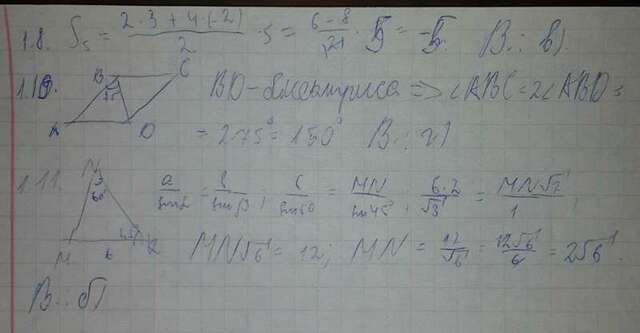 1.8. S₅ = (2·3+4·(-2))/2 · 5 = (6-8)/2 · 5 = -5. В.: в)
1.10. B C 75° A D BD - бісектриса => ∠ABC = 2∠ABD =
= 2·75° = 150° В.: г)
1.11. N 60° 45° M 6 K a/sinα = b/sinβ; 6/sin60 = MN/sin45; 6·2/√3 = MN√2/1;
MN√6 = 12; MN = 12/√6 = 12√6/6 = 2√6.
В.: б)